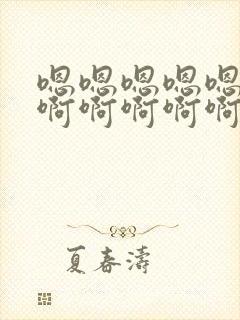 嗯嗯嗯嗯嗯
啊啊啊啊啊
夏春涛